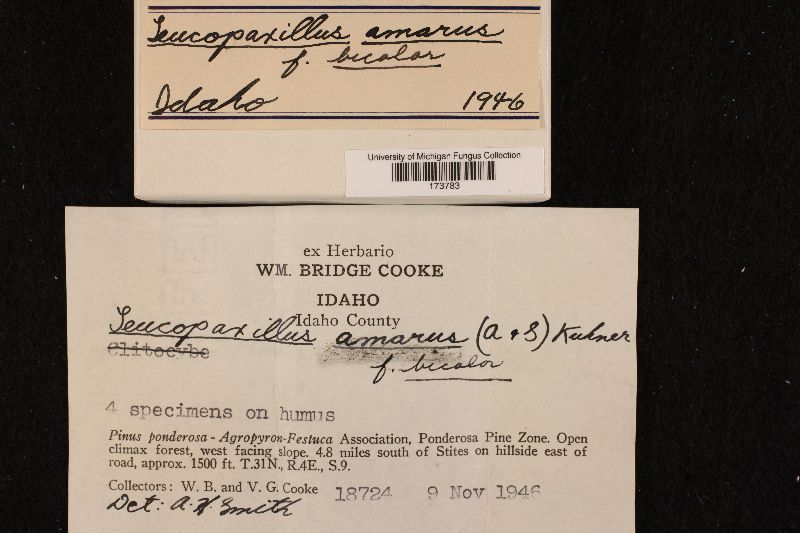 Leucopaxillus amarus
f. bicolor
Idaho 1946
University of Michigan Fungus Collection
173783
ex Herbario
WM. BRIDGE COOKE
IDAHO
Idaho County
Leucopaxillus amarus (A & S) Kuhner
Clitocybe
f. bicolor
4 specimens on humus
Pinus ponderosa - Agropyron-Festuca Association, Ponderosa Pine Zone. Open
climax forest, west facing slope. 4.8 miles south of Stites on hillside east of
road, approx. 1500 ft. T.31N., R.4E., S.9.
Collectors: W. B. and V. G. Cooke 18724 9 Nov 1946
Det: A. H. Smith